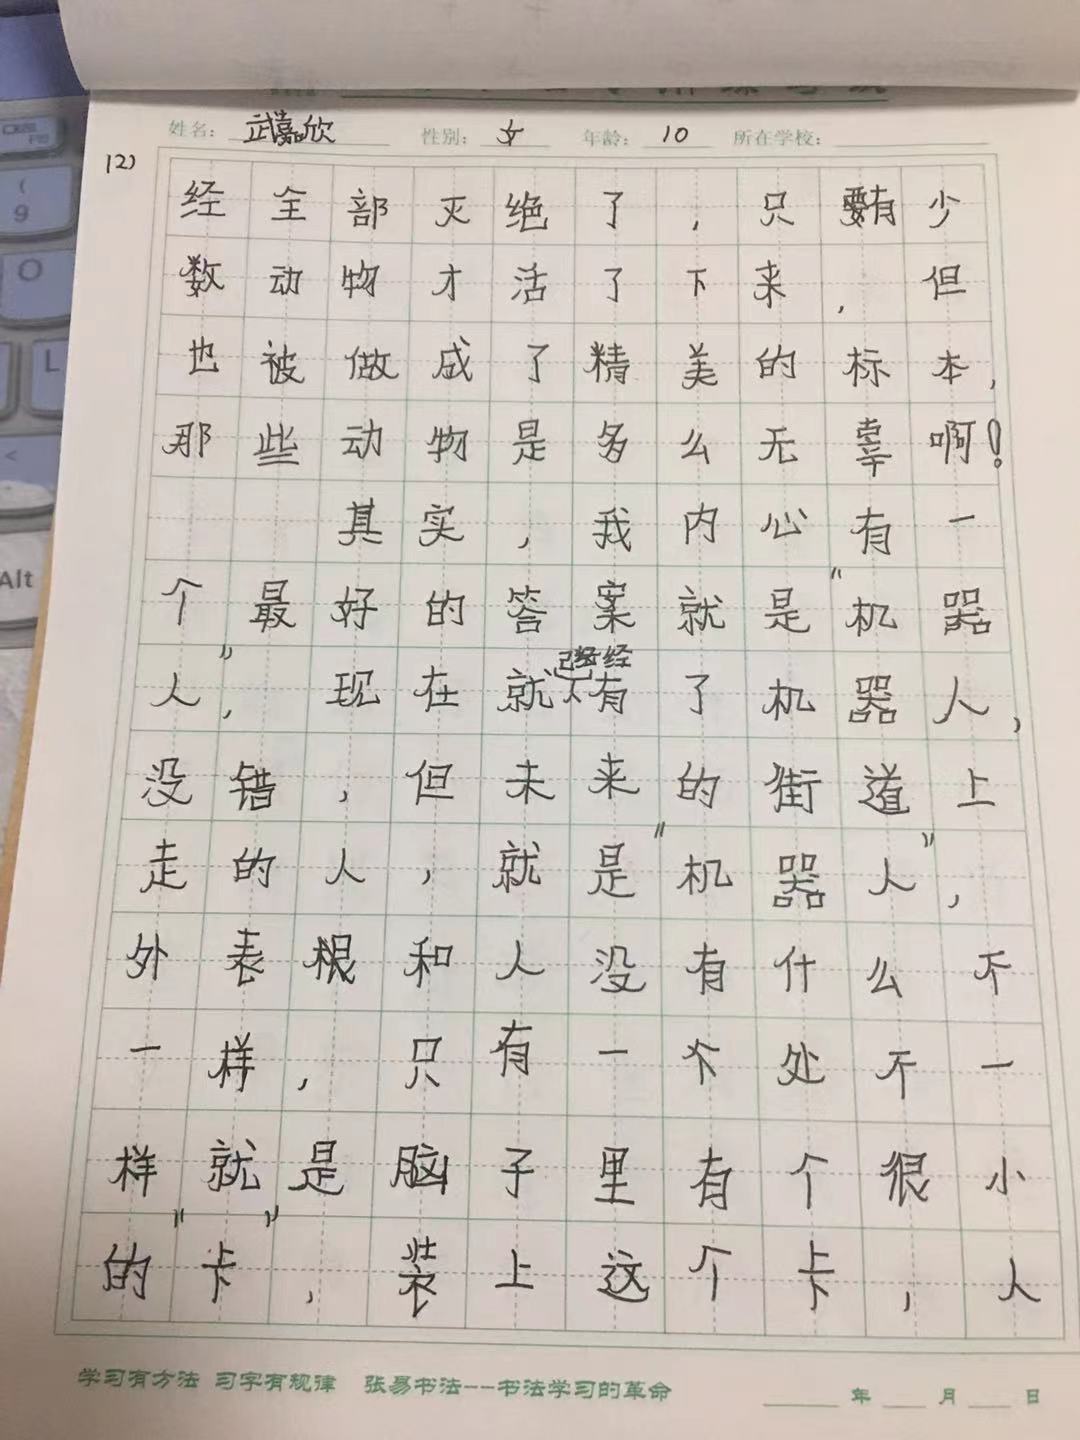 姓名：武嘉欣 性别：女 年龄：10 所在学校：
(2)
经全部灭绝了，只有少
数动物才活了下来，但
也被做成了精美的标本，
那些动物是多么无辜啊！
其实，我内心有一
个最好的答案就是“机器
人”，现在就已经有了机器人，
没错，但未来的街道上
走的人，就是“机器人”，
外表根和人没有什么不
一样，只有一个处不一
样就是脑子里有个很小
的“卡”，装上这个卡，人
学习有方法 习字有规律 张易书法--书法学习的革命
年 月 日